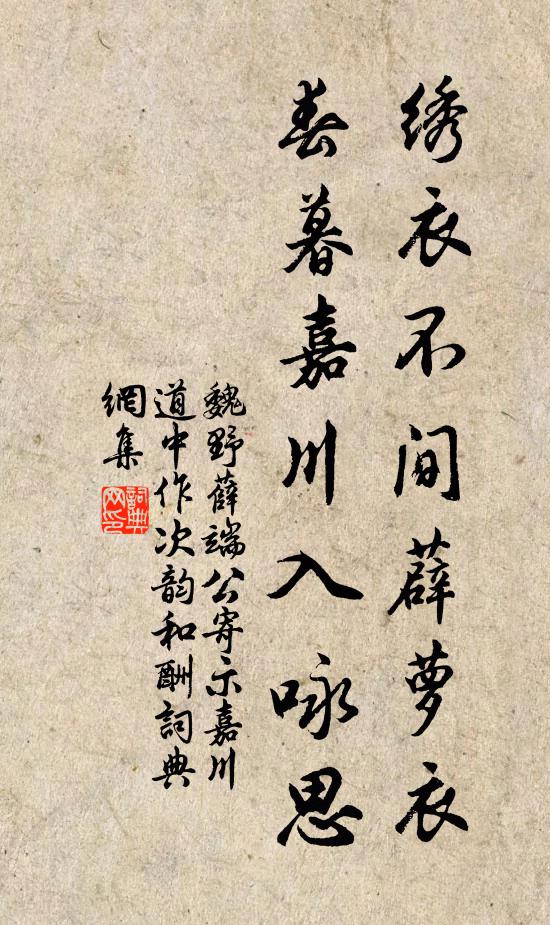 绣衣不间薜萝衣
春暮嘉川入咏思
魏野薛端公寄示嘉川
道中作次韵和酬詞典
網集
詞典
网印